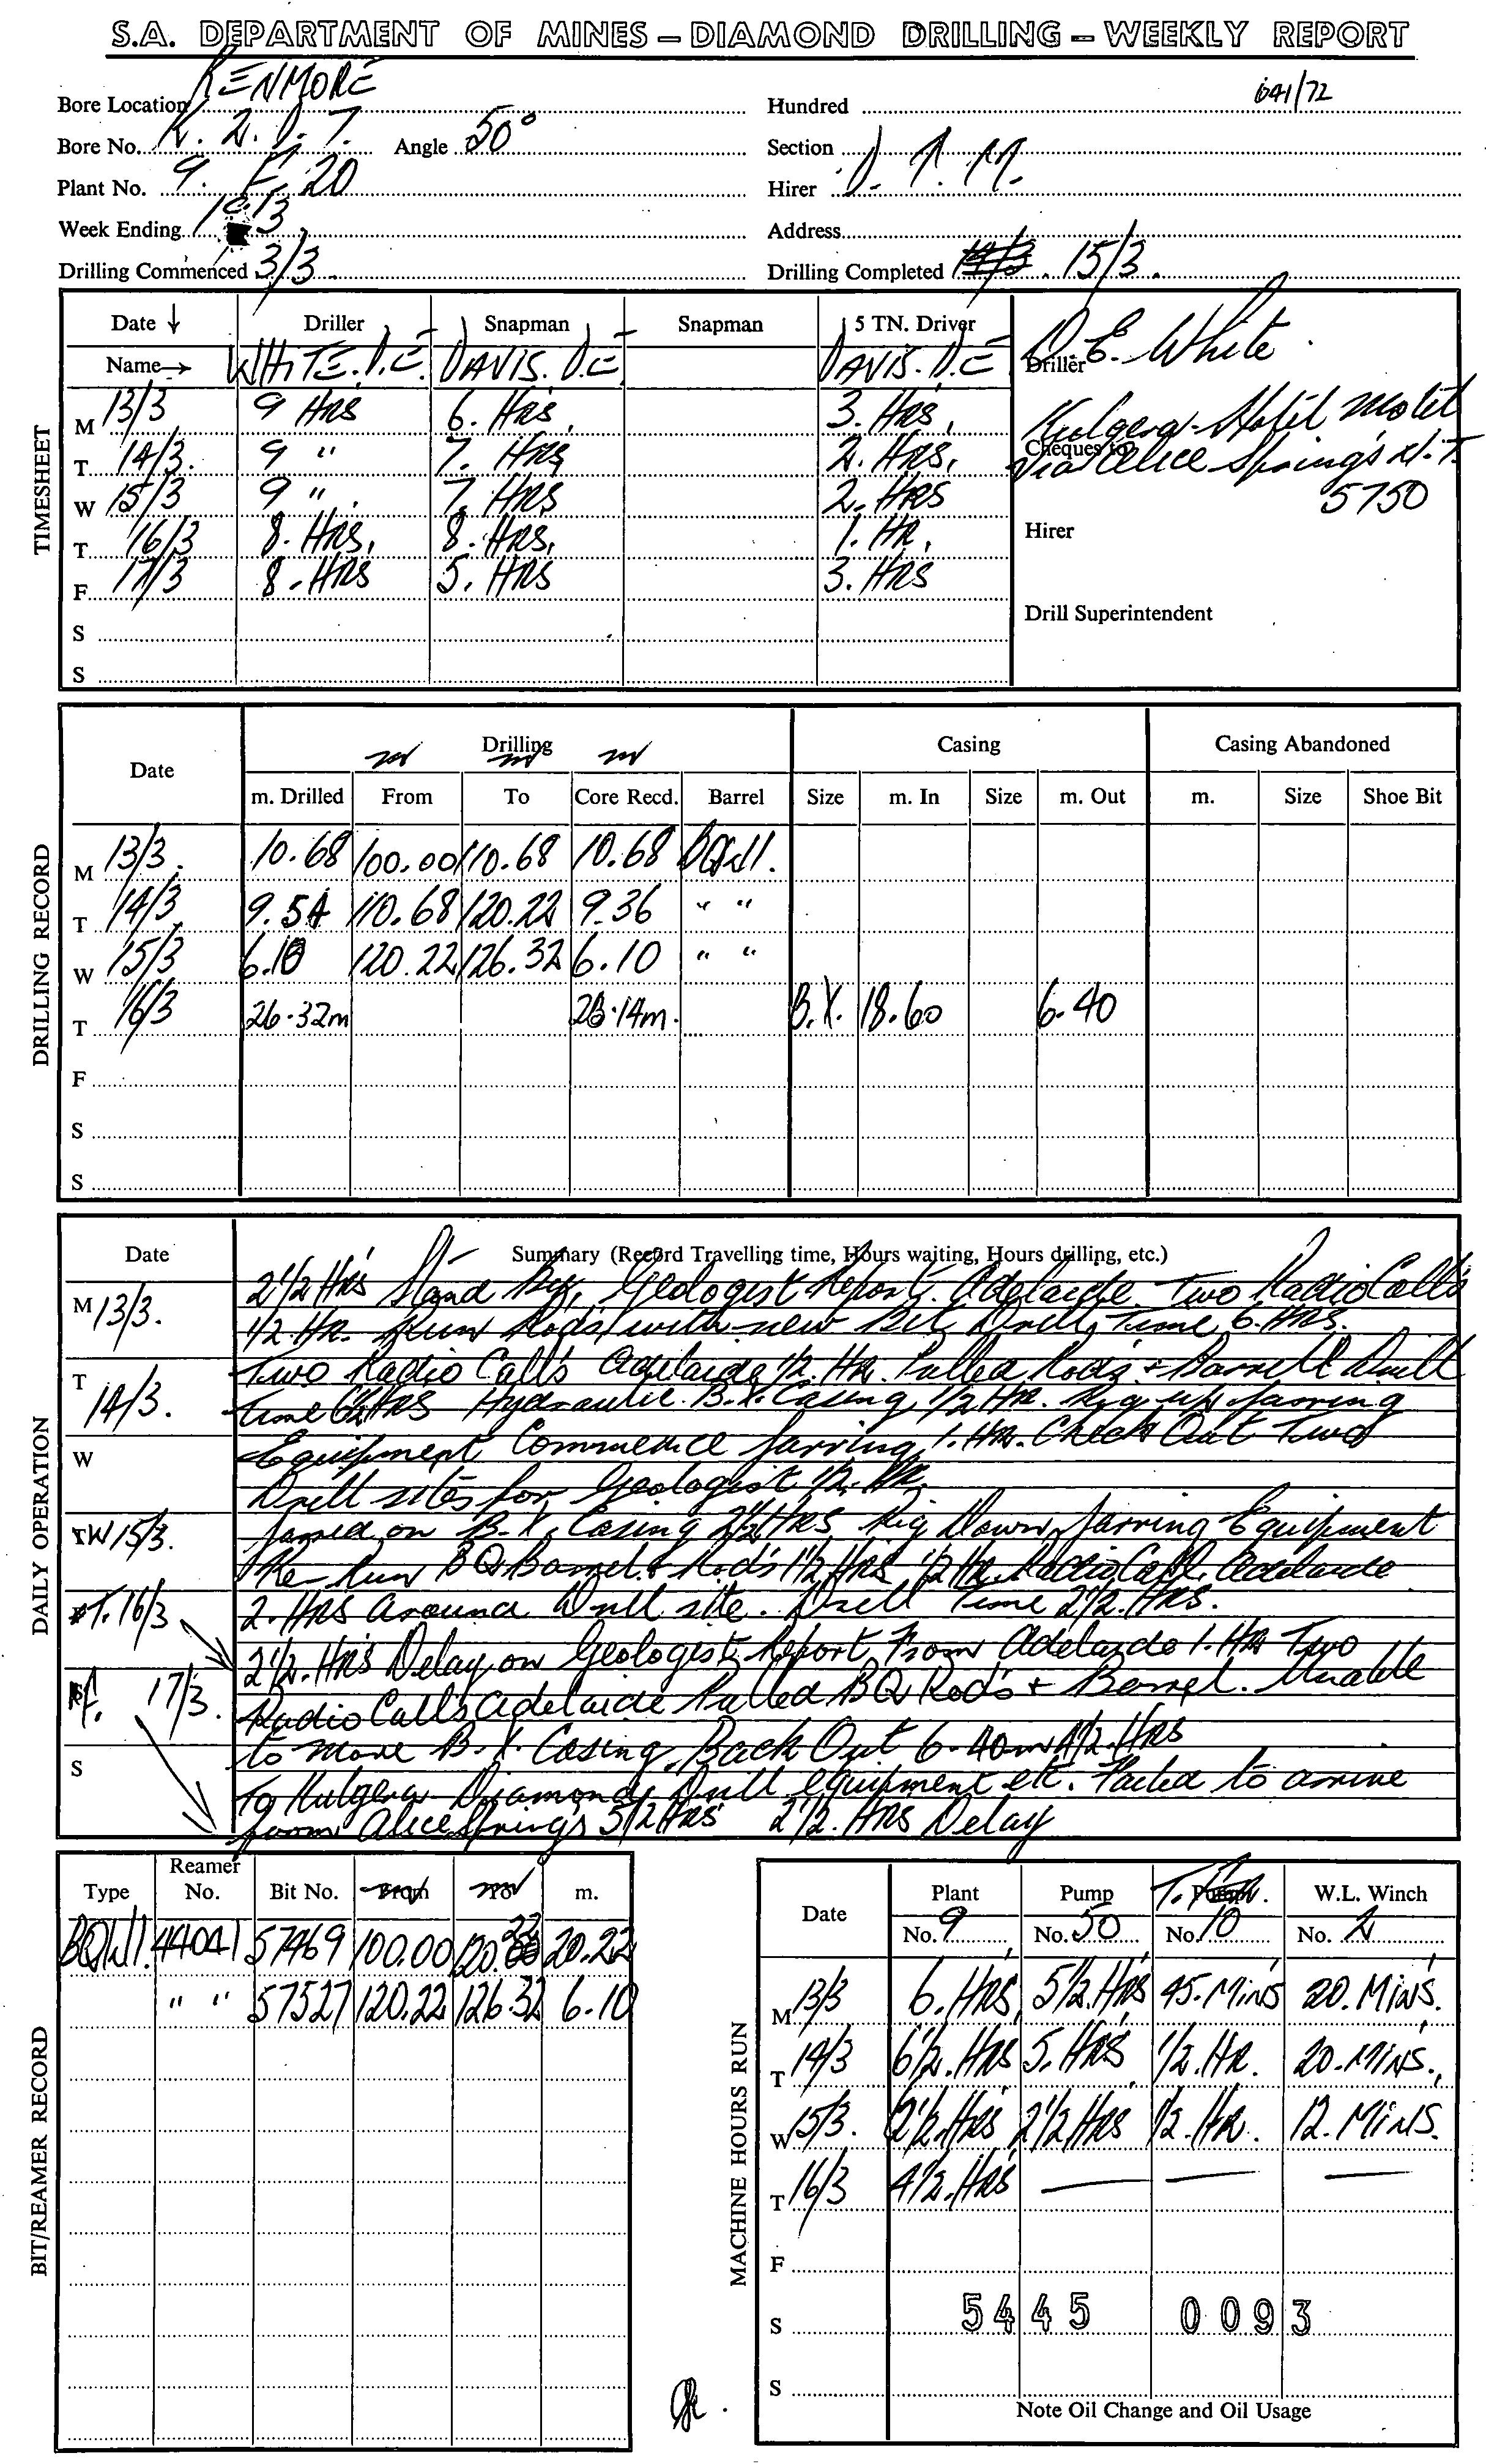 S.A. DEPARTMENT OF MINES – DIAMOND DRILLING – WEEKLY REPORT
Bore Location KENMORE
Hundred 641/72
Bore No. K. 2. D. 7. Angle 50°
Section
Plant No. 9. F. 20
Hirer D. A. M.
Week Ending 3
Address
Drilling Commenced 3/3.
Drilling Completed 15/3.
TIMESHEET
Date ↓ Driller Snapman Snapman 5 TN. Driver
Name → WHITE. D.E. DAVIS. D.E DAVIS. D.E
M 13/3 9 HRS 6. HRS, 3. HRS,
T 14/3. 9 " 7. HRS 2. HRS,
W 15/3 9 ". 7. HRS 2. HRS
T 16/3 8. HRS, 8. HRS, 1. HR,
F 17/3 8. HRS 5. HRS 3. HRS
S
S
D. E. White.
Driller
Kulgera Hotel Motel
Cheques to
Via Alice Springs N.T.
5750
Hirer
Drill Superintendent
DRILLING RECORD
Date Drilling Casing Casing Abandoned
m m m
m. Drilled From To Core Recd. Barrel Size m. In Size m. Out m. Size Shoe Bit
M 13/3. 10.68 100.00 110.68 10.68 BQWl.
T 14/3 9.54 110.68 120.22 9.36 " "
W 15/3 6.10 120.22 126.32 6.10 " "
T 16/3 26.32m 26.14m. B.X. 18.60 6.40
F
S
S
DAILY OPERATION
Date Summary (Record Travelling time, Hours waiting, Hours drilling, etc.)
M 13/3. 2 1/2 Hrs Stand By, Geologist Report. Adelaide Two Radio Calls
1/2 HR. Run Rods with new Bit, Drill Time 6. HRS.
T 14/3. Two Radio Calls Adelaide 1/2. HR. Pulled Rods + Barrell Drill
time 6 1/2 HRS Hydraulic B.X. Casing, 1/2 HR. Rig up Jarring
W Equipment Commence Jarring, 1. HR. Check Out Two
Drill sites for Geologist 1/2. HR.
T W 15/3. Jarred on B.X. Casing 2 1/2 HRS Rig Down Jarring Equipment
Re-Run BQ Barrel & Rods 1 1/2 HRS 1/2 HR Radio Call. Adelaide
T. 16/3 2. HRS around Drill site. Drill Time 2 1/2. HRS.
2 1/2. HRS Delay on Geologist Report From Adelaide 1. HR Two
F. 17/3. Radio Calls Adelaide Pulled BQ Rods + Barrel. Unable
to move B.X. Casing, Back Out 6.40m 4 1/2. HRS
S To Kulgera Diamond Drill equipment etc. Failed to arrive
from Alice Springs 5 1/2 HRS 2 1/2. HRS Delay
BIT/REAMER RECORD
Type Reamer No. Bit No. From To m.
BQWl. 44041 57469 100.00 120.22 20.22
" " 57527 120.22 126.32 6.10
MACHINE HOURS RUN
Date Plant Pump W.L. Winch
No. 9 No. 50 No. 10 No. 2
M 13/3 6. HRS, 5 1/2. HRS 45. MINS 20. MINS.
T 14/3 6 1/2. HRS 5. HRS 1/2. HR. 20. MINS.
W 15/3. 2 1/2. HRS 2 1/2 HRS 1/2. HR. 12. MINS.
T 16/3 4 1/2. HRS — — —
F
S 5445 0093
S
Note Oil Change and Oil Usage